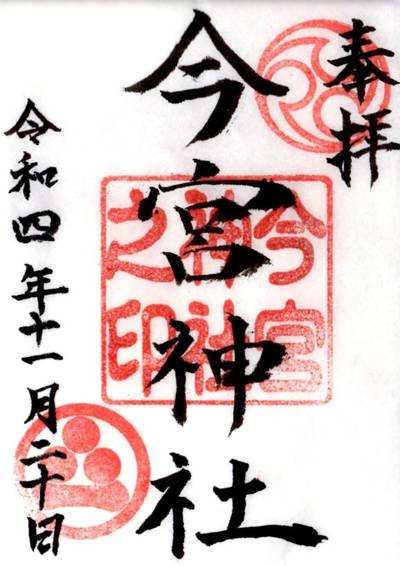 奉拝
今宮神社
今宮神社之印
令和四年十一月二十日